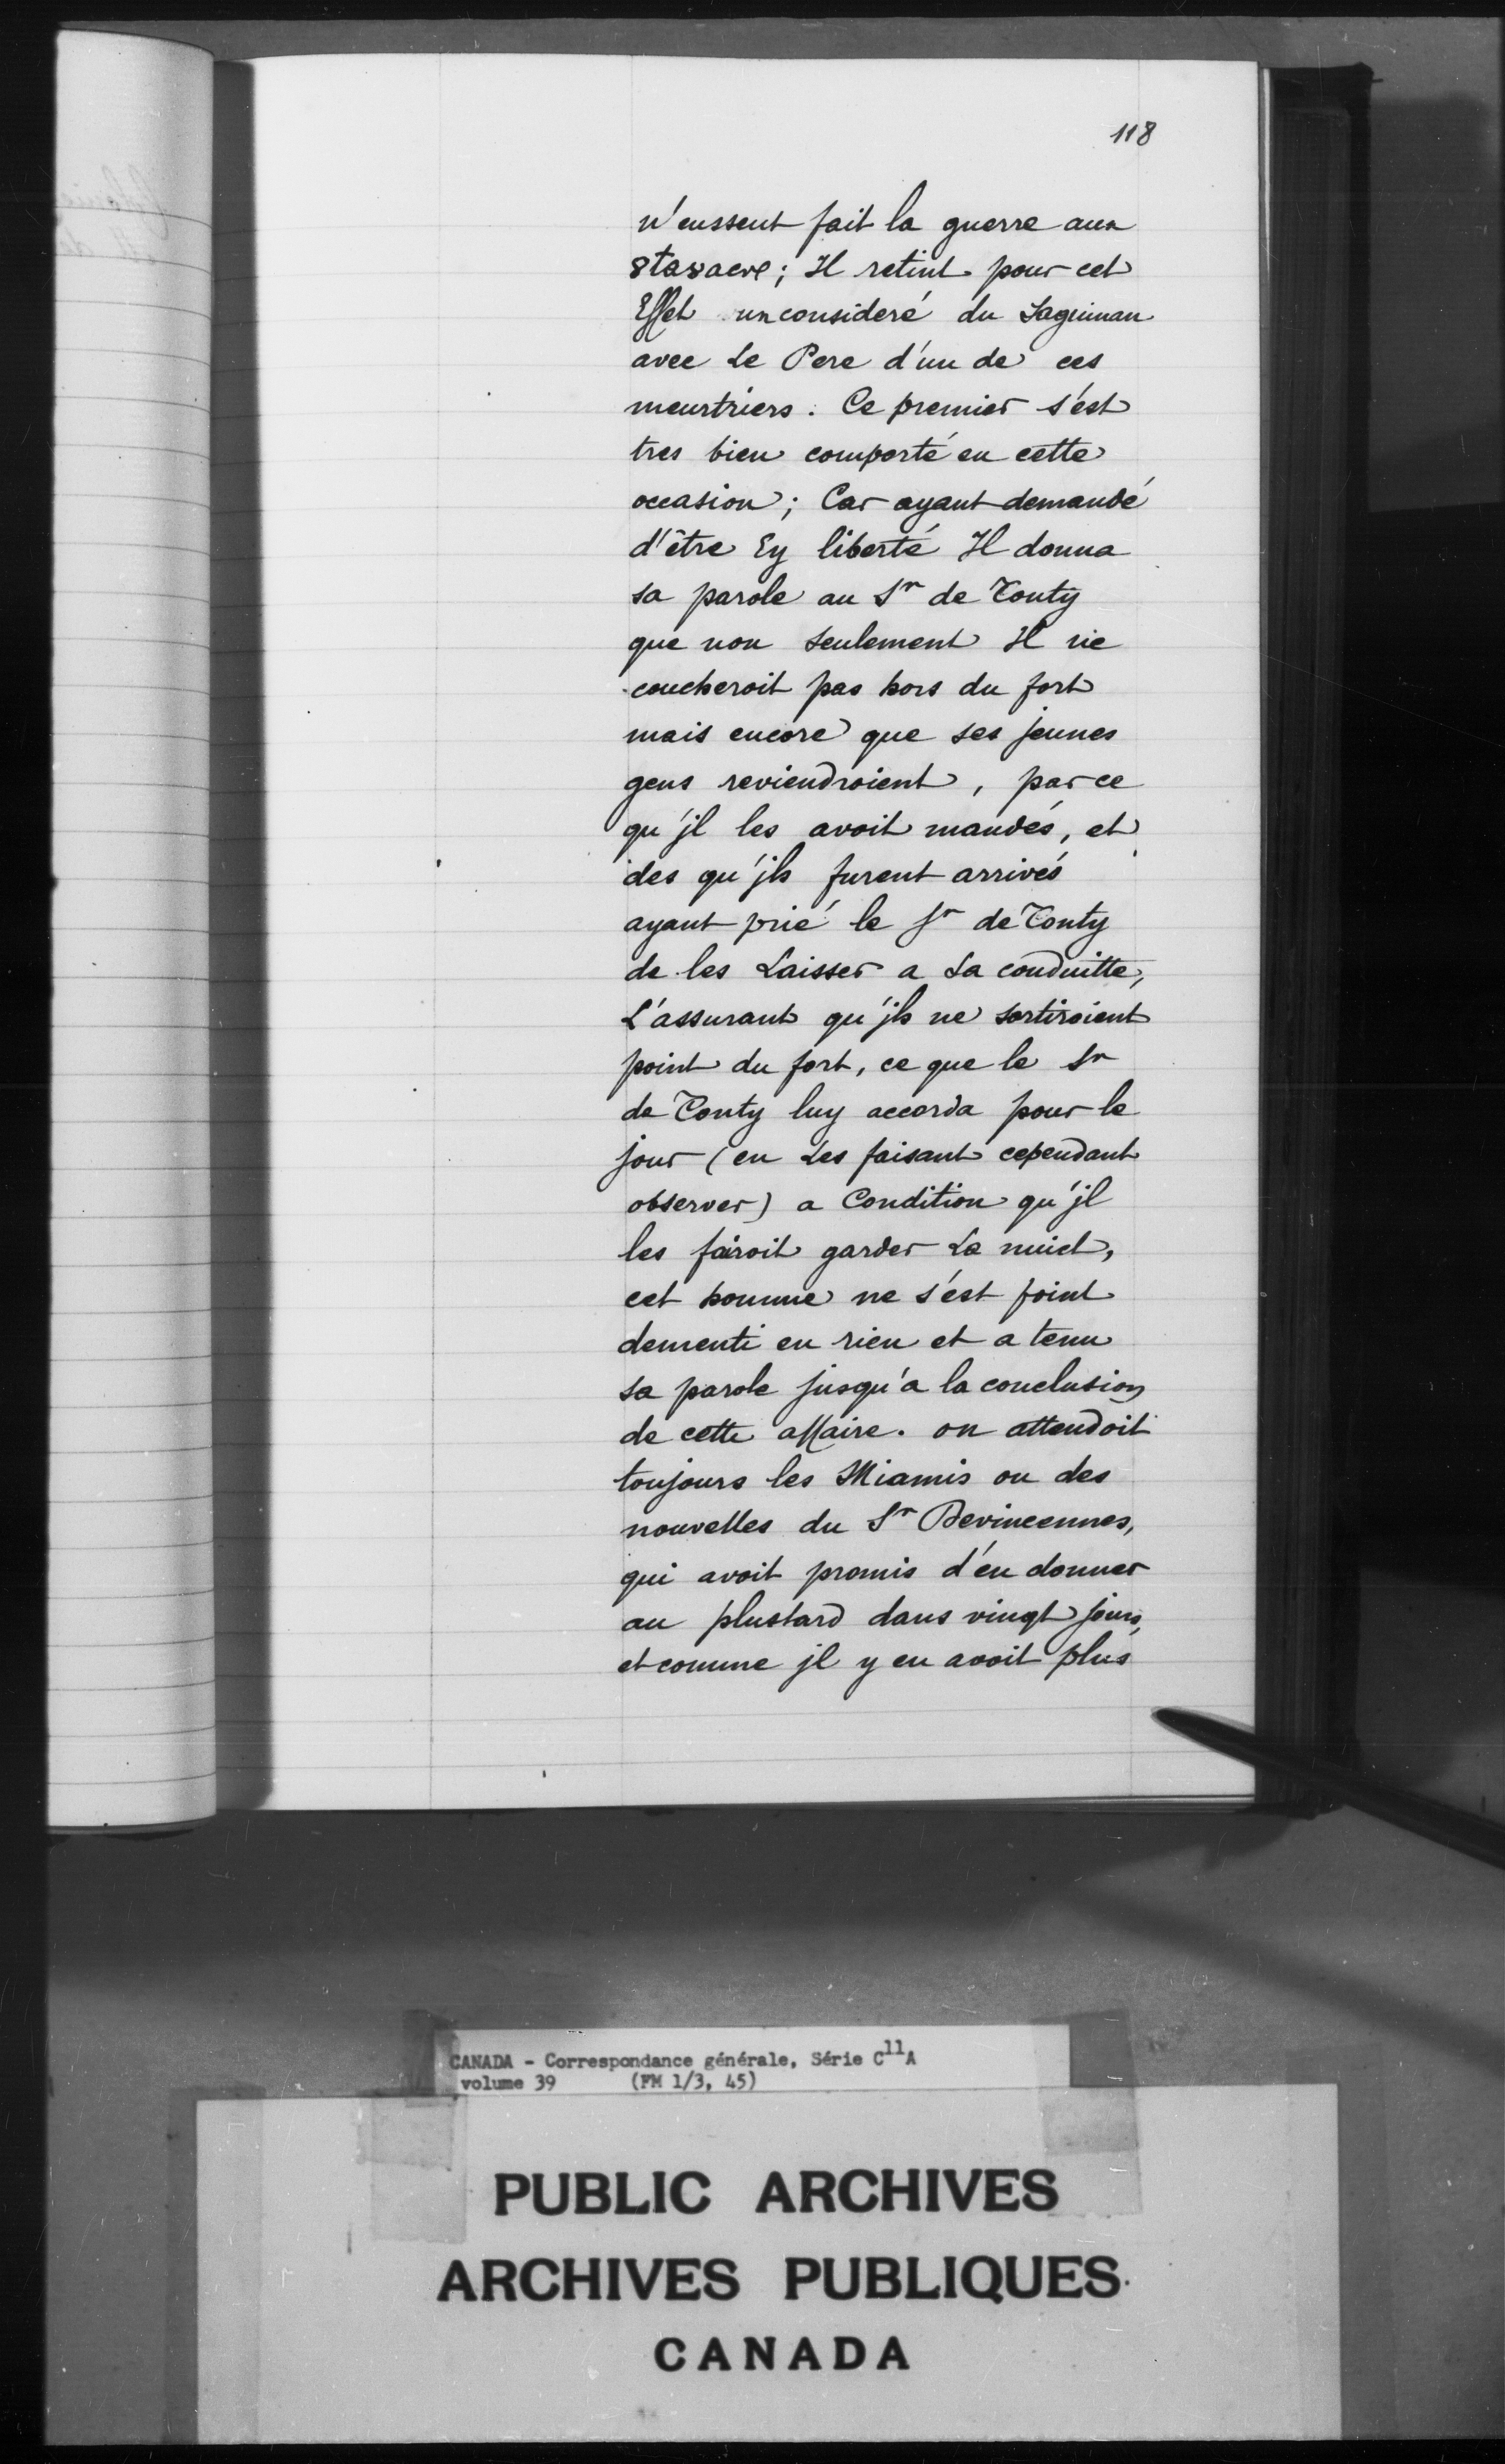 118
n'eussent fait la guerre aux
8ta8acre; Il retint pour cet
Effet un consideré du Saguinan
avec Le Pere d'un de ces
meurtriers. Ce premier s'est
tres bien comporté en cette
occasion; Car ayant demandé
d'être Ey liberté Il donna
sa parole au Sr de Tonty
que non seulement Il ne
coucheroit pas hors du fort
mais encore que ses jeunes
gens reviendroient, par ce
qu'jl les avoit mandés, et
des qu'jls furent arrivés
ayant prié le Sr de Tonty
de les Laisser a sa conduitte,
L'assurant qu'jls ne sortiroient
point du fort, ce que le Sr
de Tonty luy accorda pour le
jour (en Les faisant cependant
observer) a Condition qu'jl
les fairoit garder La nuict,
cet homme ne s'est point
dementi en rien et a tenu
sa parole jusqu'a la conclusion
de cette affaire. on attendoit
toujours les Miamis ou des
nouvelles du Sr Devincennes,
qui avoit promis d'en donner
au plustard dans vingt jours,
et comme jl y en avoit plus
CANADA - Correspondance générale, Série C11A
volume 39 (FM 1/3, 45)
PUBLIC ARCHIVES
ARCHIVES PUBLIQUES
CANADA